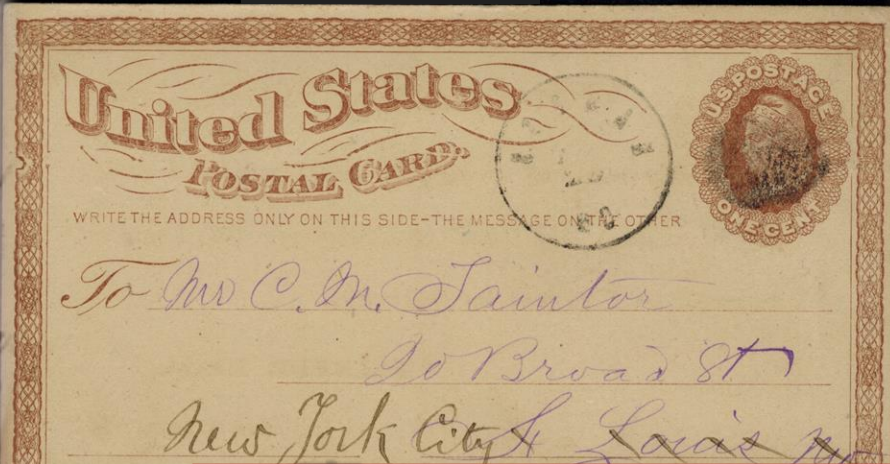 United States
Postal Card.
U.S. POSTAGE
ONE CENT
WRITE THE ADDRESS ONLY ON THIS SIDE–THE MESSAGE ON THE OTHER
MO
To C. M. Taintor
Broad St
New York City St Louis Mo